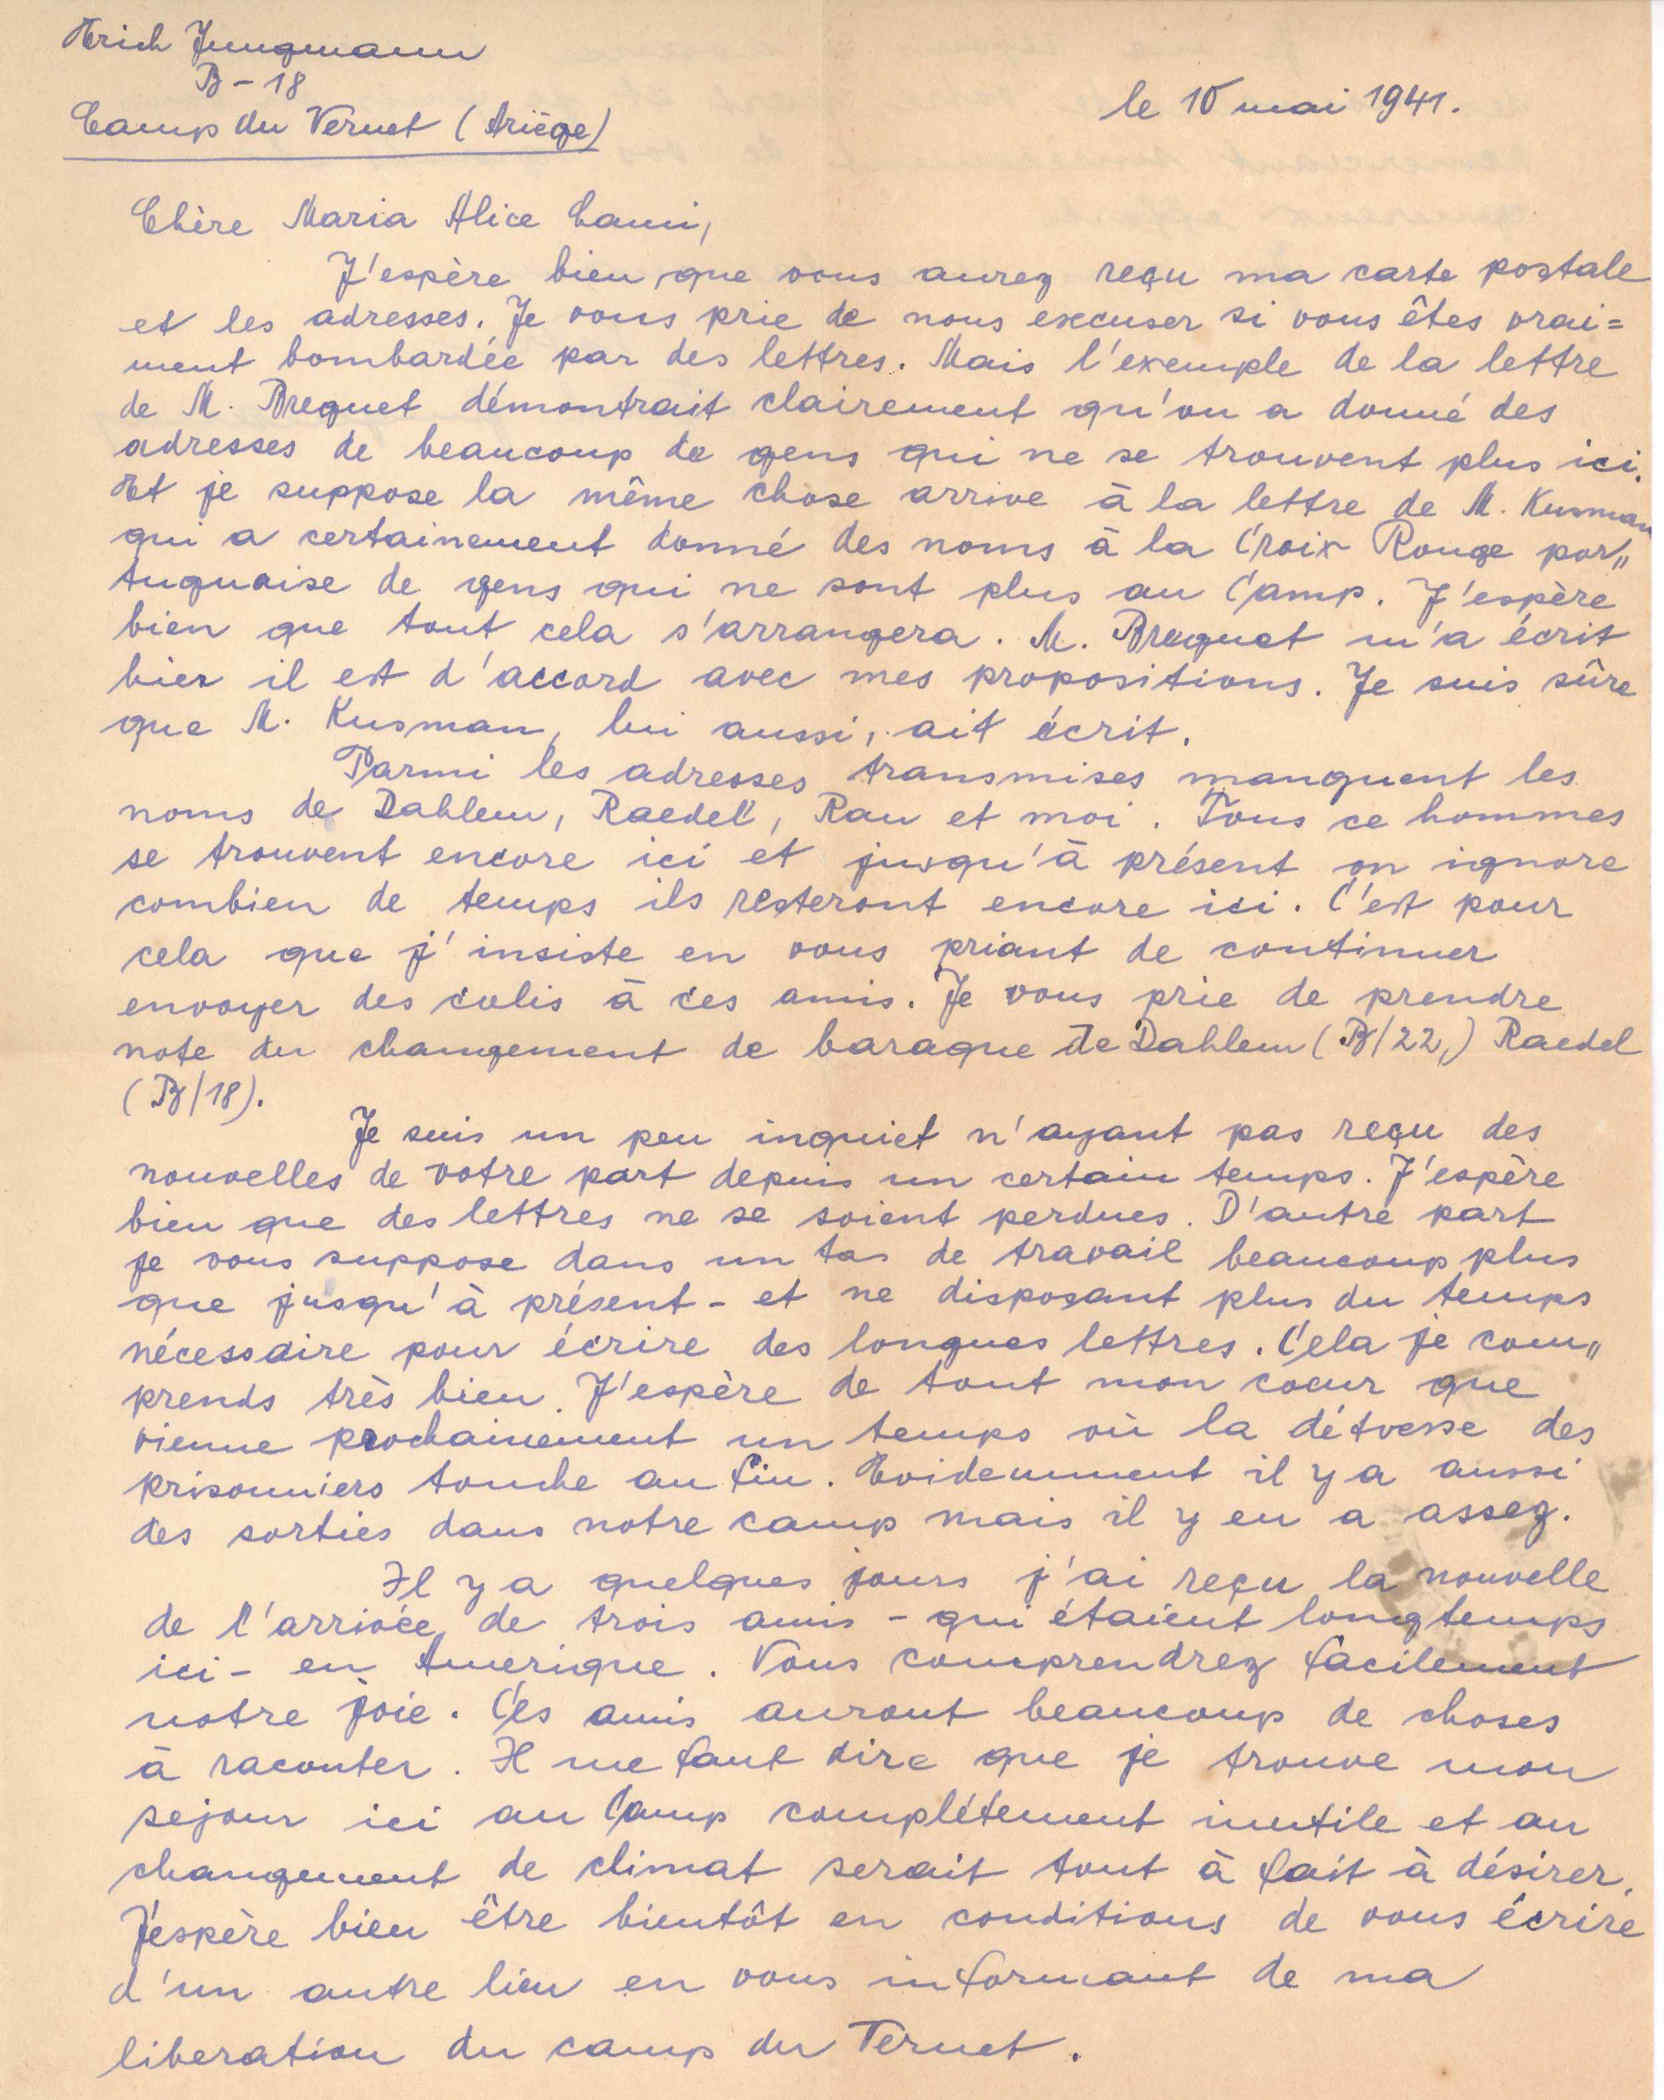 Erich Jungmann
B-18
Camp du Vernet (Ariège)
le 10 mai 1941.
Chère Maria Alice Lami,
J'espère bien que vous aurez reçu ma carte postale
et les adresses. Je vous prie de nous excuser si vous êtes vrai=
ment bombardée par des lettres. Mais l'exemple de la lettre
de M. Breguet démontrait clairement qu'on a donné des
adresses de beaucoup de gens qui ne se trouvent plus ici.
Et je suppose la même chose arrive à la lettre de M. Kusman
qui a certainement donné des noms à la Croix Rouge por„
tuguaise de gens qui ne sont plus au Camp. J'espère
bien que tout cela s'arrangera. M. Breguet m'a écrit
hier il est d'accord avec mes propositions. Je suis sûre
que M. Kusman, lui aussi, ait écrit.
Parmi les adresses transmises manquent les
noms de Dahlem, Raedel, Rau et moi. Tous ce hommes
se trouvent encore ici et jusqu'à présent on ignore
combien de temps ils resteront encore ici. C'est pour
cela que j'insiste en vous priant de continuer
envoyer des colis à ces amis. Je vous prie de prendre
note du changement de baraque de Dahlem (B/22,) Raedel
(B/18).
Je suis un peu inquiet n'ayant pas reçu des
nouvelles de votre part depuis un certain temps. J'espère
bien que des lettres ne se soient perdues. D'autre part
je vous suppose dans un tas de travail beaucoup plus
que jusqu'à présent - et ne disposant plus du temps
nécessaire pour écrire des longues lettres. Cela je com„
prends très bien. J'espère de tout mon coeur que
vienne prochainement un temps où la détresse des
prisonniers touche au fin. Evidemment il y a aussi
des sorties dans notre camp mais il y en a assez.
Il y a quelques jours j'ai reçu la nouvelle
de l'arrivée de trois amis - qui étaient longtemps
ici - en Amerique. Vous comprendrez facilement
notre joie. Ces amis auront beaucoup de choses
à raconter. Il me faut dire que je trouve mon
sejour ici au Camp complétement inutile et un
changement de climat serait tout à fait à désirer.
J'éspère bien être bientôt en conditions de vous écrire
d'un autre lieu en vous informant de ma
liberation du camp du Vernet.